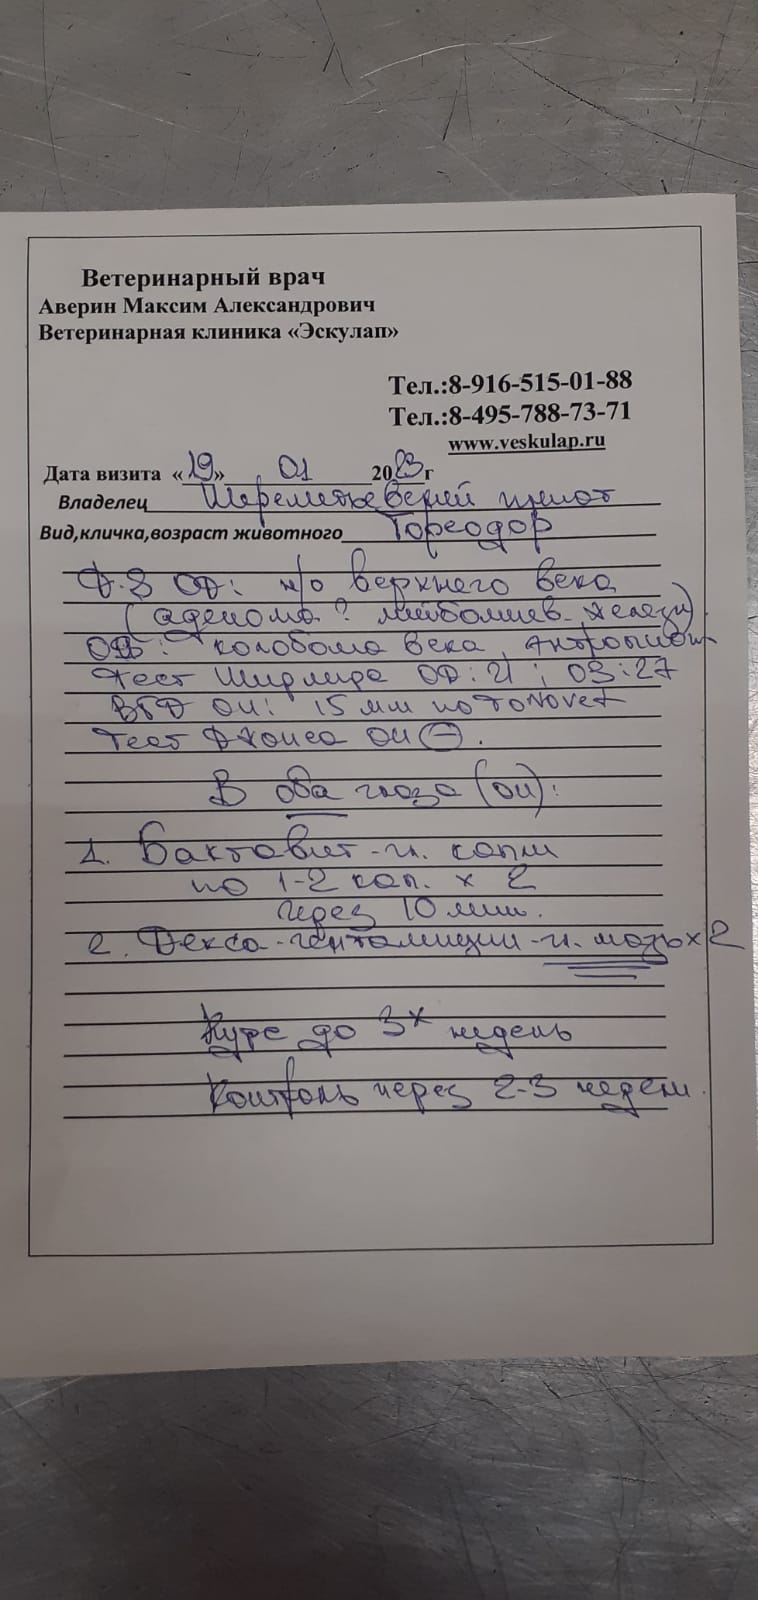 Ветеринарный врач
Аверин Максим Александрович
Ветеринарная клиника «Эскулап»
Тел.:8-916-515-01-88
Тел.:8-495-788-73-71
www.veskulap.ru
Дата визита «19» 01 2023г
Владелец Шереметьевский приют
Вид,кличка,возраст животного Тореодор
D.S OD: н/о верхнего века
(аденома? мейбомиев. железы)
: колобома века,
Тест Ширмера OD: 21; OS: 27
ВГД OU: 15 мм по Tonovet
Тест Джонса OU (-).
В оба глаза (OU):
1. Бактавет-н. капли
по 1-2 кап. x 2
через 10 мин.
2. Декса-гентамицин-н. мазь x 2
Курс до 3х недель
Контроль через 2-3 недели.